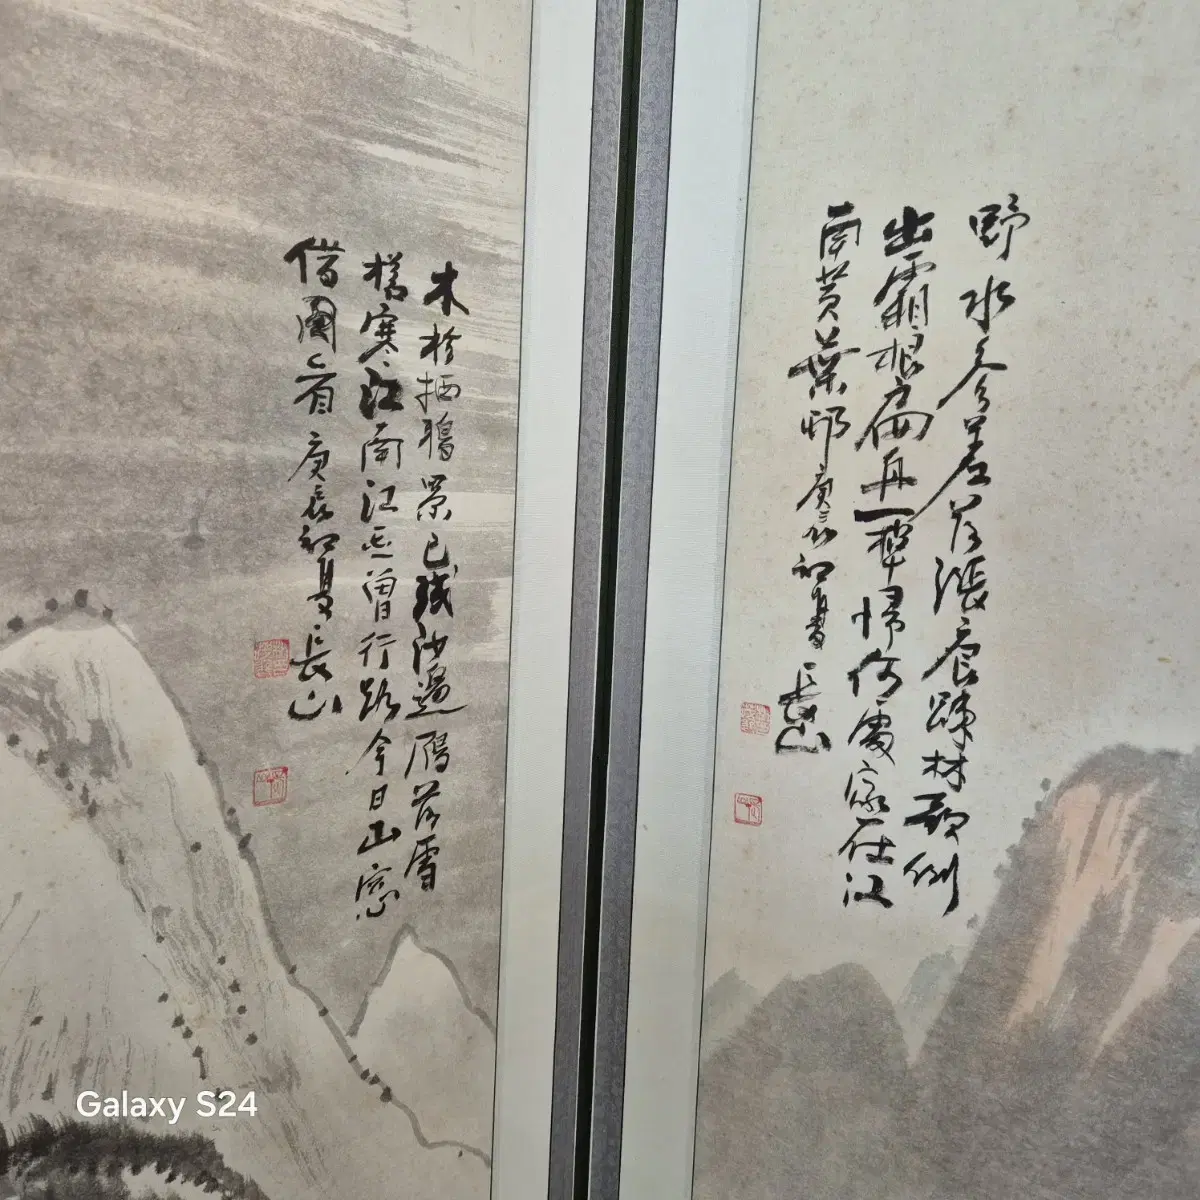 野水參差落漲痕疎林欹倒
出霜根扁舟一棹歸何處家在江
南黃葉邨庚辰初夏長山
木杪栖鴉景已殘沙邊鴈落雪
寒江南江北曾行路今日山窓
借圖看庚辰初夏長山
Galaxy S24